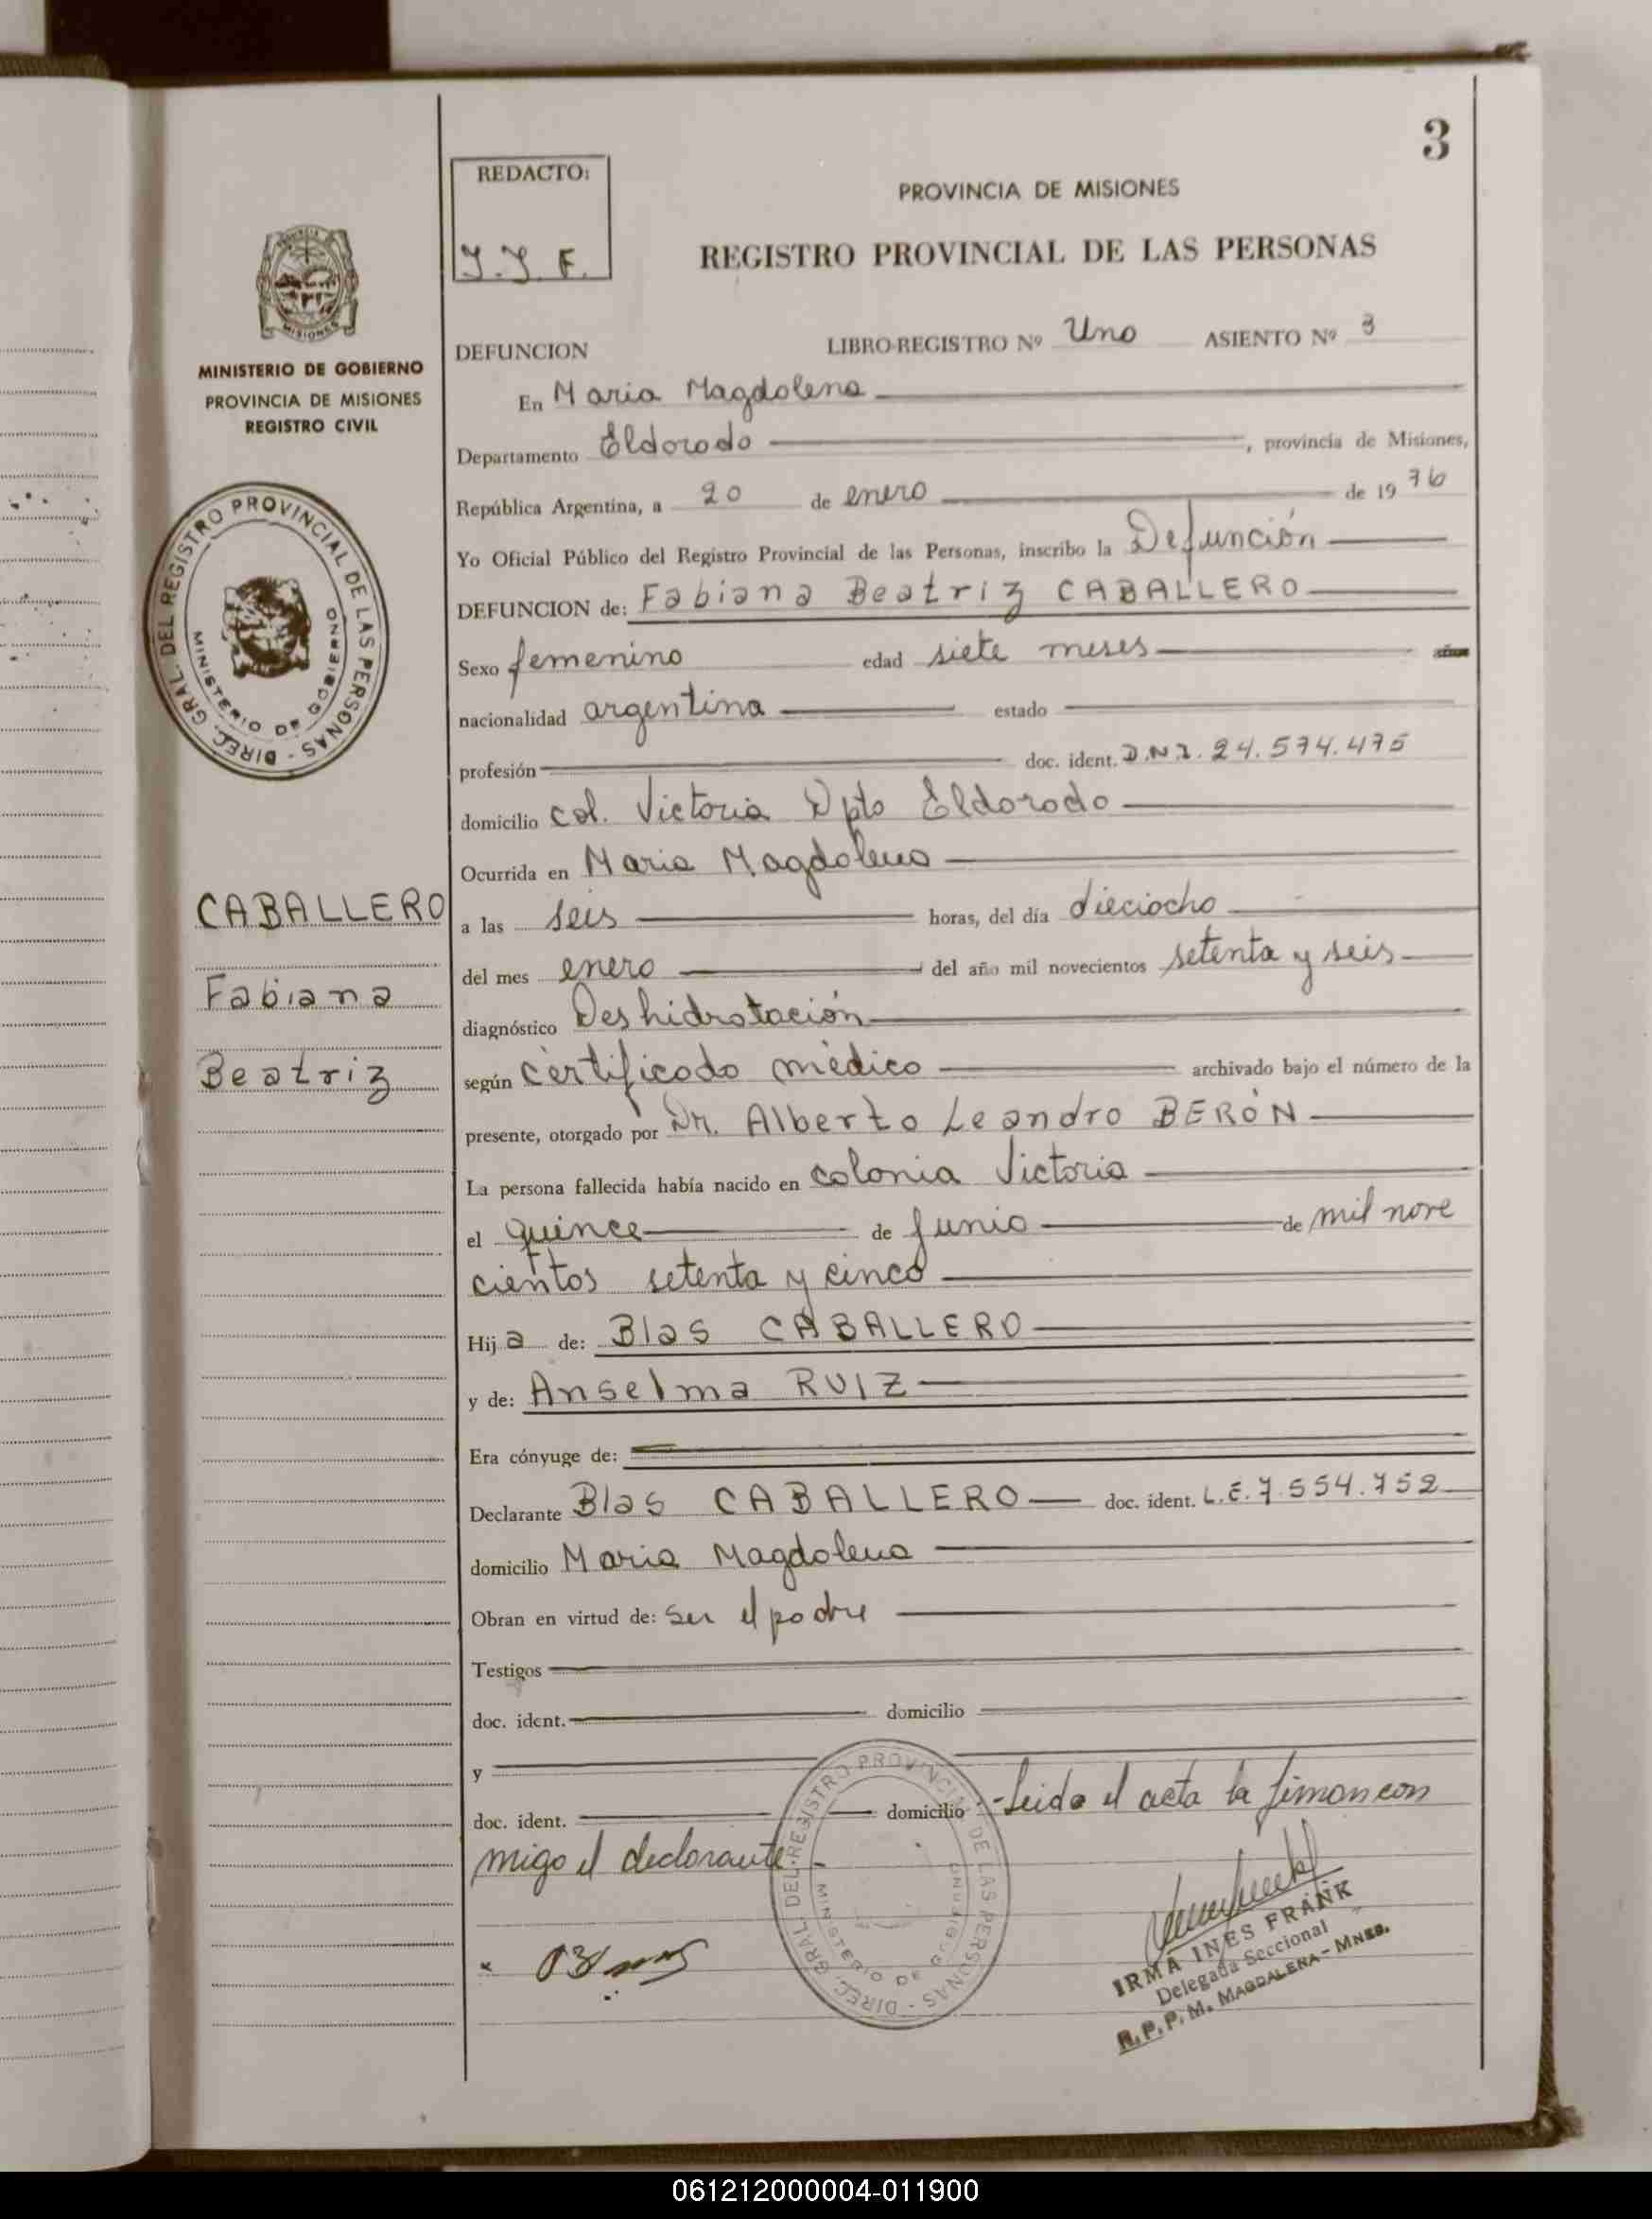 3
REDACTO:
PROVINCIA DE MISIONES
REGISTRO PROVINCIAL DE LAS PERSONAS
MISIONES
MINISTERIO DE GOBIERNO
PROVINCIA DE MISIONES
REGISTRO CIVIL
DIREC. GRAL. DEL REGISTRO PROVINCIAL DE LAS PERSONAS -
MINISTERIO DE GOBIERNO
CABALLERO
Fabiana
Beatriz
DEFUNCION LIBRO-REGISTRO Nº Uno ASIENTO Nº 3
En Maria Magdalena
Departamento Eldorado, provincia de Misiones,
República Argentina, a 20 de enero de 1976
Yo Oficial Público del Registro Provincial de las Personas, inscribo la Defunción
DEFUNCION de: Fabiana Beatriz CABALLERO
Sexo femenino edad siete meses
nacionalidad argentina estado
profesión doc. ident. D.N.I. 24.574.475
domicilio col. Victoria Dpto Eldorado
Ocurrida en Maria Magdalena
a las seis horas, del día dieciocho
del mes enero del año mil novecientos setenta y seis
diagnóstico Deshidratación
según certificado médico archivado bajo el número de la
presente, otorgado por Dr. Alberto Leandro BERÓN
La persona fallecida había nacido en colonia Victoria
el quince de junio de mil nove
cientos setenta y cinco
Hija de: Blas CABALLERO
y de: Anselma RUIZ
Era cónyuge de:
Declarante Blas CABALLERO doc. ident. L.E. 7.554.752
domicilio Maria Magdalena
Obran en virtud de: Ser el padre
Testigos
doc. ident. domicilio
y
doc. ident. domicilio -Leida el acta la firman con
migo el declarante.-
DIREC. GRAL. DEL REGISTRO PROVINCIAL DE LAS PERSONAS -
MINISTERIO DE GOBIERNO
IRMA INES FRANK
Delegada Seccional
R.P.P. M. MAGDALENA - MNES.
061212000004-011900